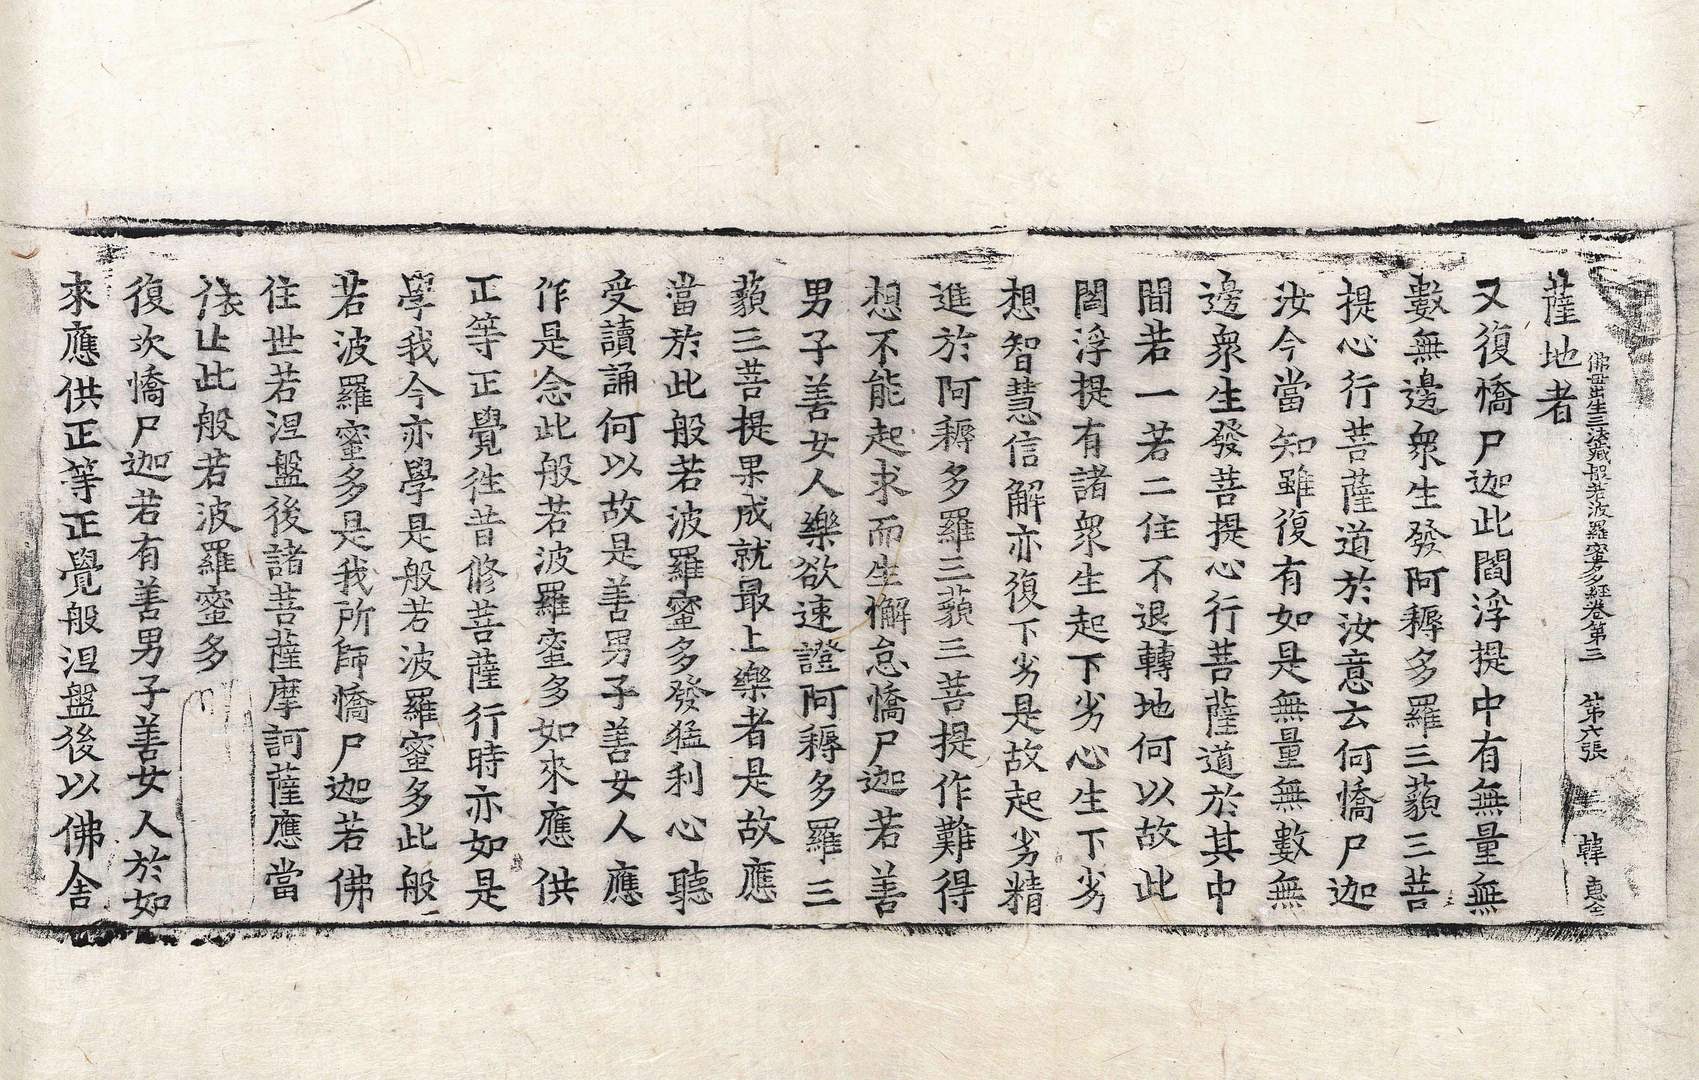 佛母出生三法藏般若波羅蜜多經卷第三 第六張 韓 惠全
薩地者
又復憍尸迦此閻浮提中有無量無
數無邊衆生發阿耨多羅三藐三菩
提心行菩薩道於汝意云何憍尸迦
汝今當知雖復有如是無量無數無
邊衆生發菩提心行菩薩道於其中
間若一若二住不退轉地何以故此
閻浮提有諸衆生起下劣心生下劣
想智慧信解亦復下劣是故起劣精
進於阿耨多羅三藐三菩提作難得
想不能起求而生懈怠憍尸迦若善
男子善女人樂欲速證阿耨多羅三
藐三菩提果成就最上樂者是故應
當於此般若波羅蜜多發猛利心聽
受讀誦何以故是善男子善女人應
作是念此般若波羅蜜多如來應供
正等正覺往昔修菩薩行時亦如是
學我今亦學是般若波羅蜜多此般
若波羅蜜多是我所師憍尸迦若佛
住世若涅盤後諸菩薩摩訶薩應當
依止此般若波羅蜜多
復次憍尸迦若有善男子善女人於如
來應供正等正覺般涅盤後以佛舍